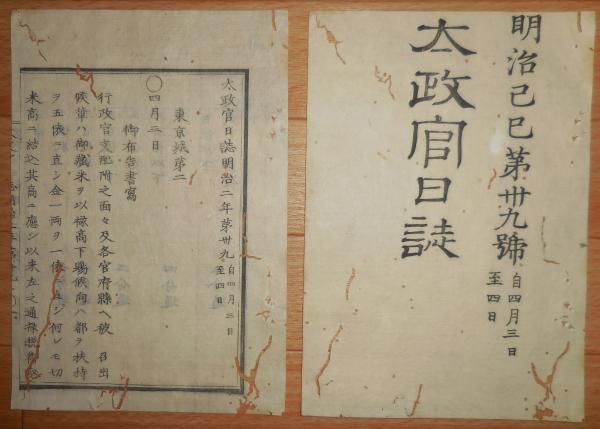 明治己巳第卅九號
自四月三日
至四日
太政官日誌
太政官日誌明治二年第卅九
自四月三日
至四日
東京城第二
○四月三日
御布告書寫
行政官支配附之面々及各官府縣ヘ被 召出
候輩ハ御藏米ヲ以禄高下賜候向ハ都テ扶持
ヲ五俵ニ直シ金一両ヲ一俵ニ直シ何レモ切
米高ニ結込其高ニ應シ以来左之通